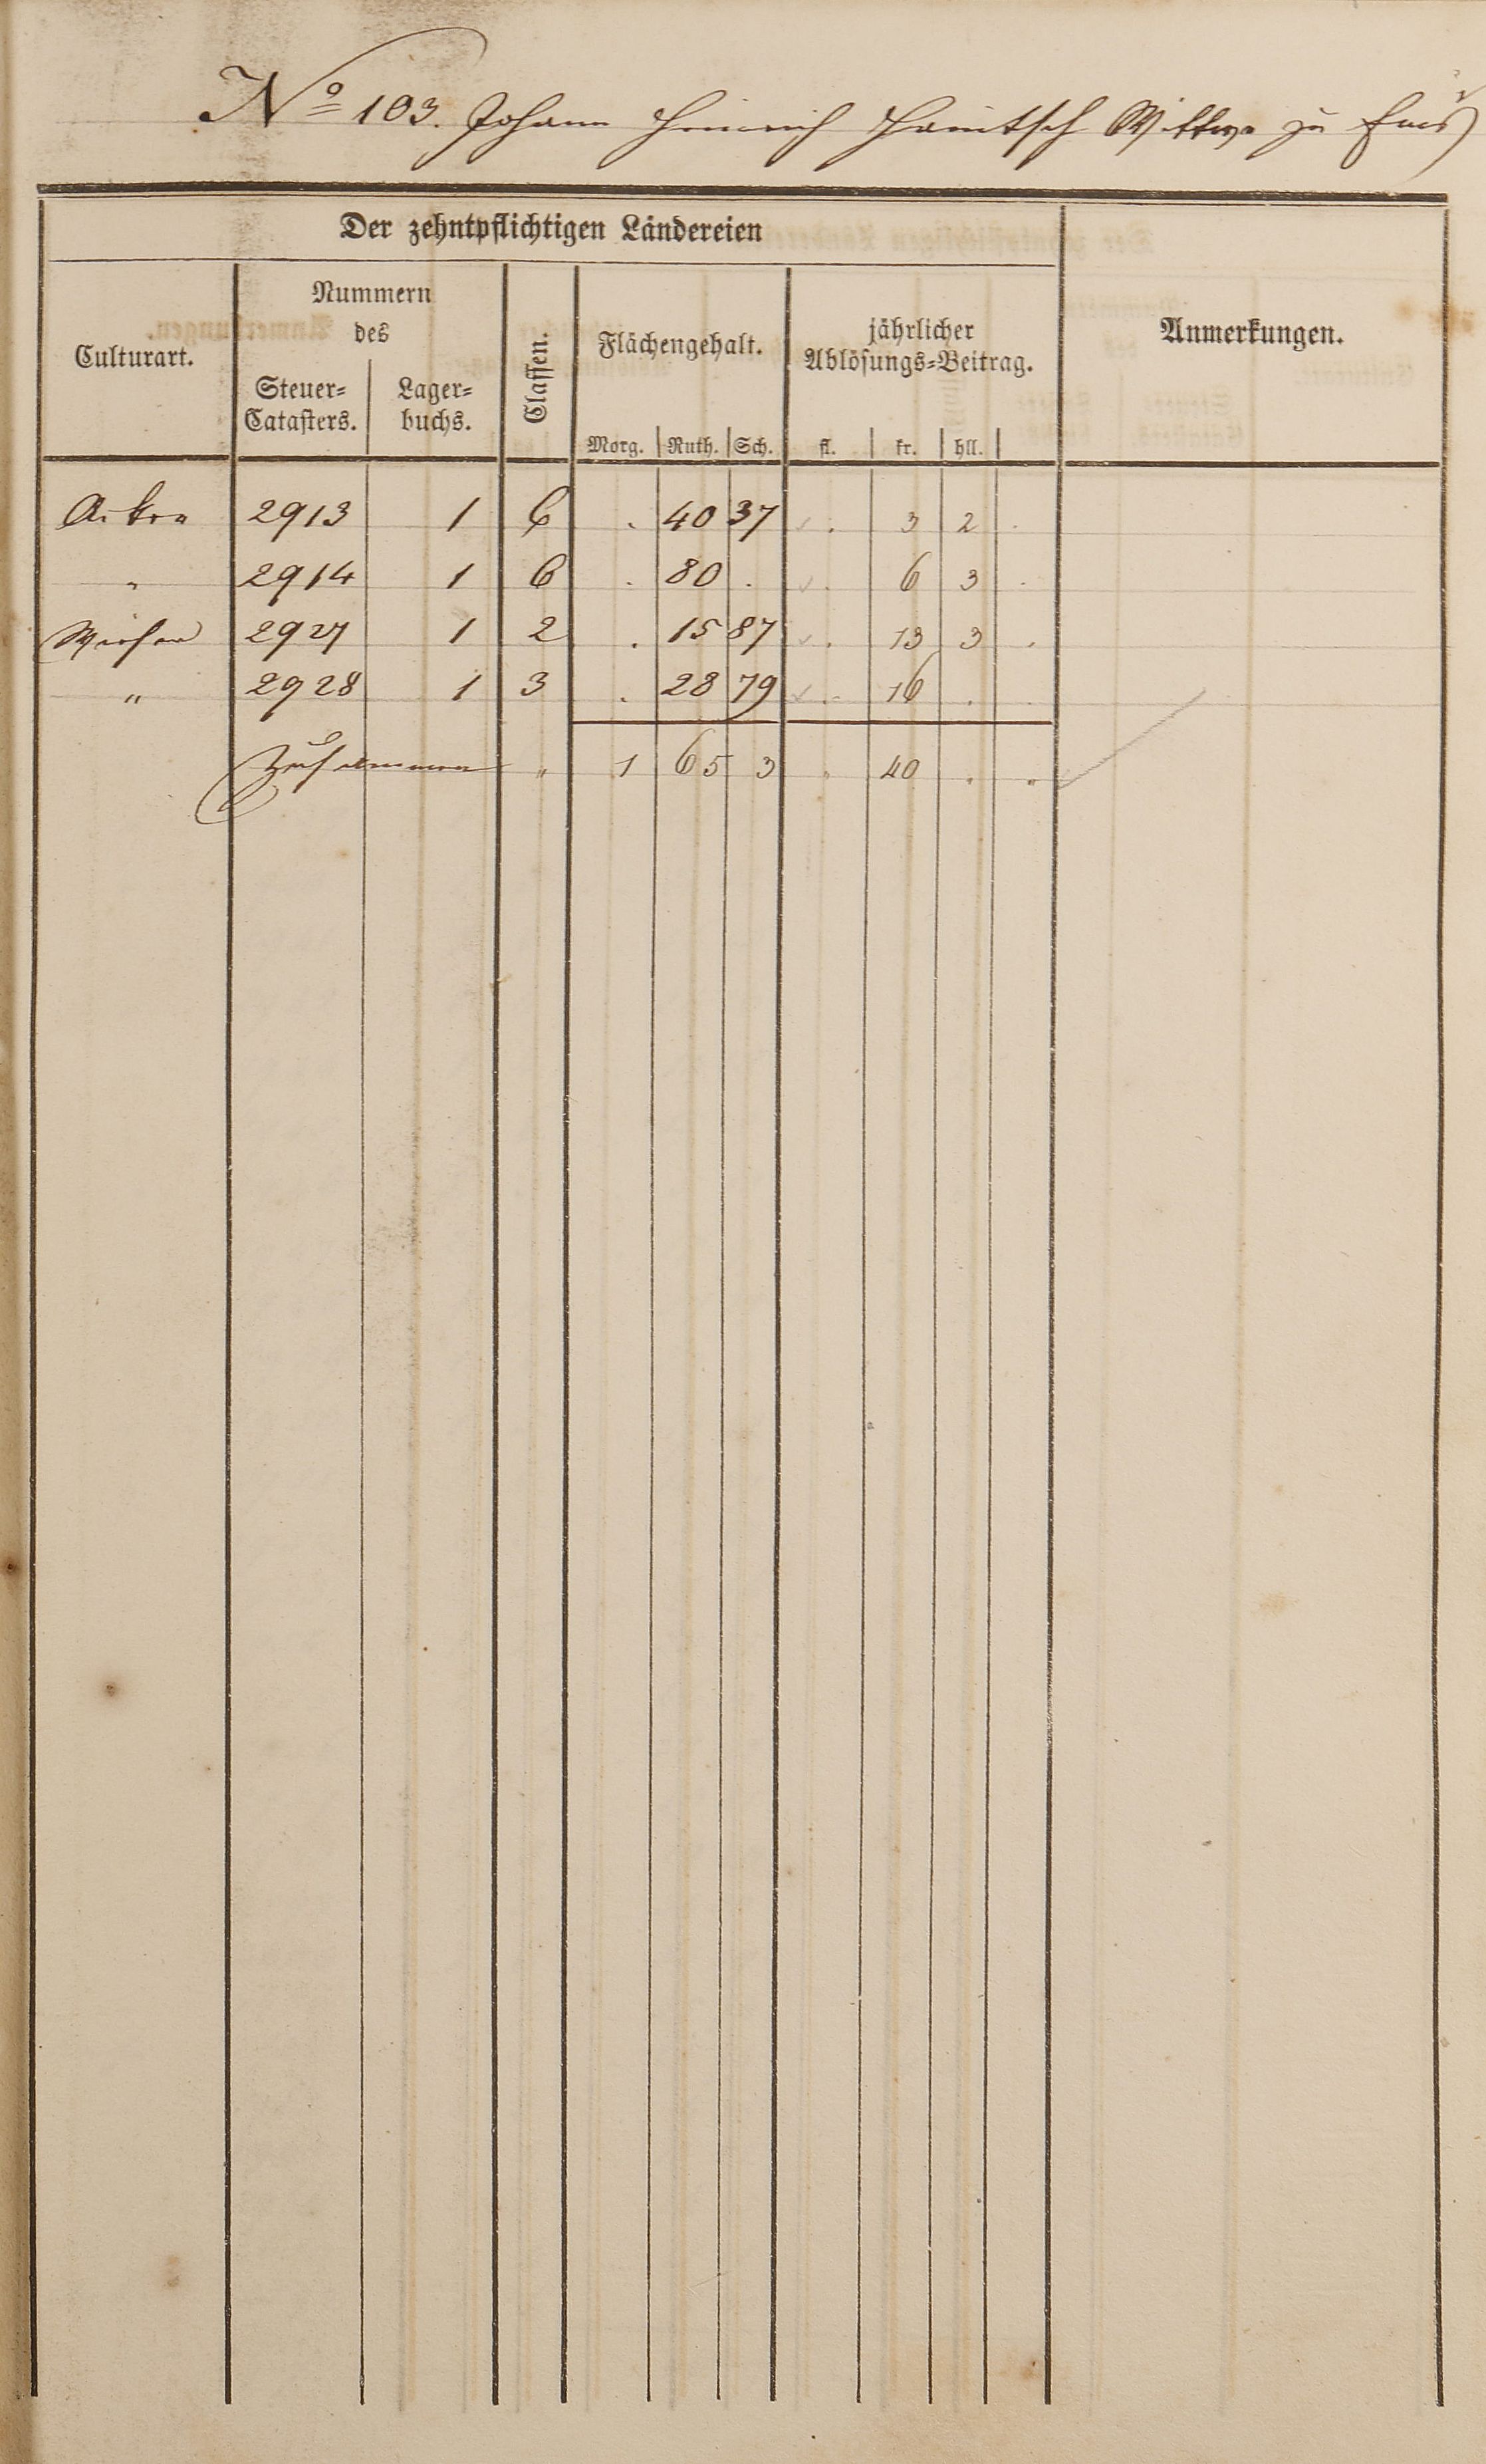 No 103. Johann Heinrich Wittwe zu Ems
Der zehntpflichtigen Ländereien
Culturart.
Nummern
des
Steuer-
Catasters.
Lager-
buchs.
Classen.
Flächengehalt.
Morg. Ruth. Sch.
jährlicher
Ablösungs-Beitrag.
fl. kr. hll.
Anmerkungen.
Acker 2913 1 6 . 40 37 . 3 2 .
" 2914 1 6 . 80 . . 6 3 .
Wiesen 2927 1 2 . 15 87 . 13 3 .
" 2928 1 3 . 28 79 . 16 . .
Zusammen " 1 65 3 " 40 . "